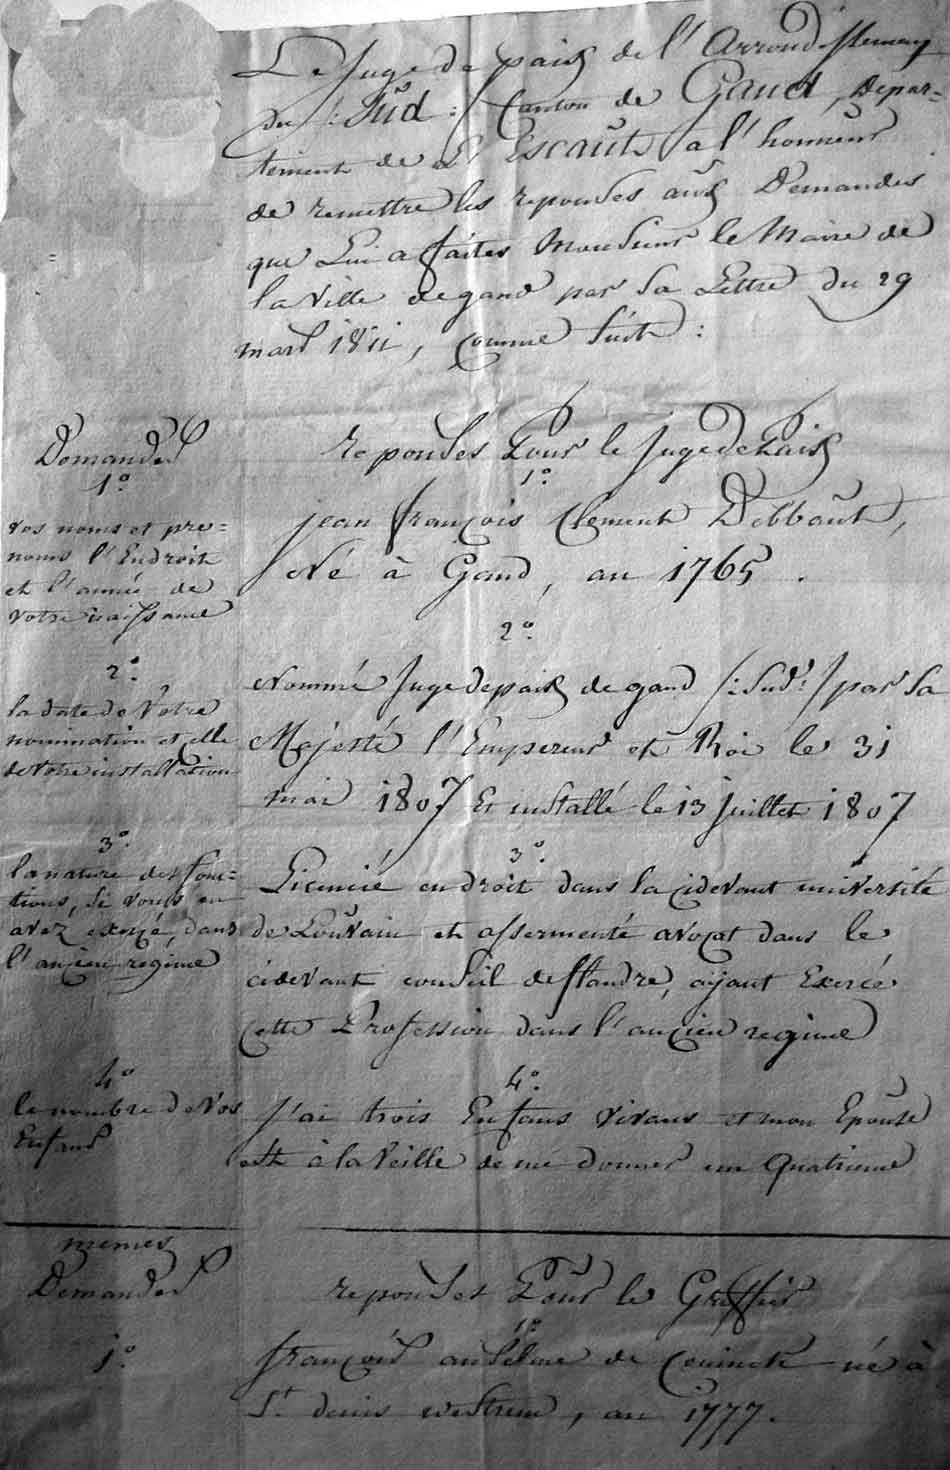 Le Juge de paix de l'Arrondissement
du :Sud:/ Canton de Gand, Depar=
tement de L'Escaut, a l'honneur
de remettre les reponses aux Demandes
que Lui a faites Monsieur le Maire de
la Ville de gand par Sa Lettre du 29
mars 1811, comme Suit :
Demandes
reponses Pour le Juge de Paix
1°.
1°.
vos noms et pre=
noms l'Endroit
et l'année de
votre naissance
jean françois Clement Debbaut,
Né à Gand, an 1765.
2°.
2°.
la date de Votre
nomination et celle
de Votre installation
Nommé Juge de paix de gand /:Sud:/ par Sa
Majesté l'Empereur et Roi le 31
mai 1807 Et installé le 13 Juillet 1807
3°.
3°.
la nature des fonc=
tions, Si vous en
avez exercé, dans
l'ancien regime
Licencié en droit dans la cidevant université
de Louvain et assermenté avocat dans le
cidevant conseil de flandre, aijant Exercé
cette Profession dans l'ancien regime
4°
4°.
le nombre de Vos
Enfans
J'ai trois Enfans vivans et mon Epouse
est à la Veille de me donner un quatrieme
memes
Demandes
reponses Pour le Greffier
1°.
1°
françois anselme de Coninck né à
St. denis westrem, an 1777.